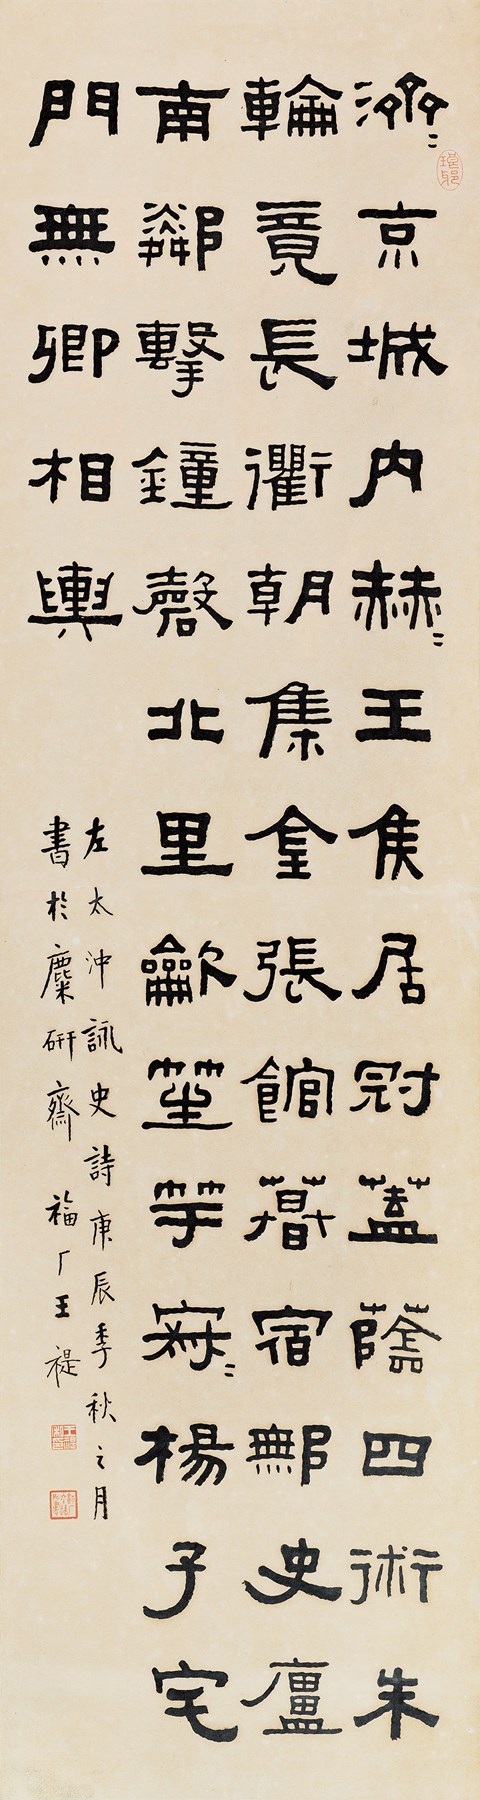 濟〻京城内赫〻王侯居冠蓋蔭四術朱
輪竟長衢朝集金張館莫宿鄦史廬
南鄰擊鐘磬北里龡笙竽寂〻楊子宅
門無卿相輿
左太沖詠史詩庚辰季秋之月
書於麋研齋福厂王禔